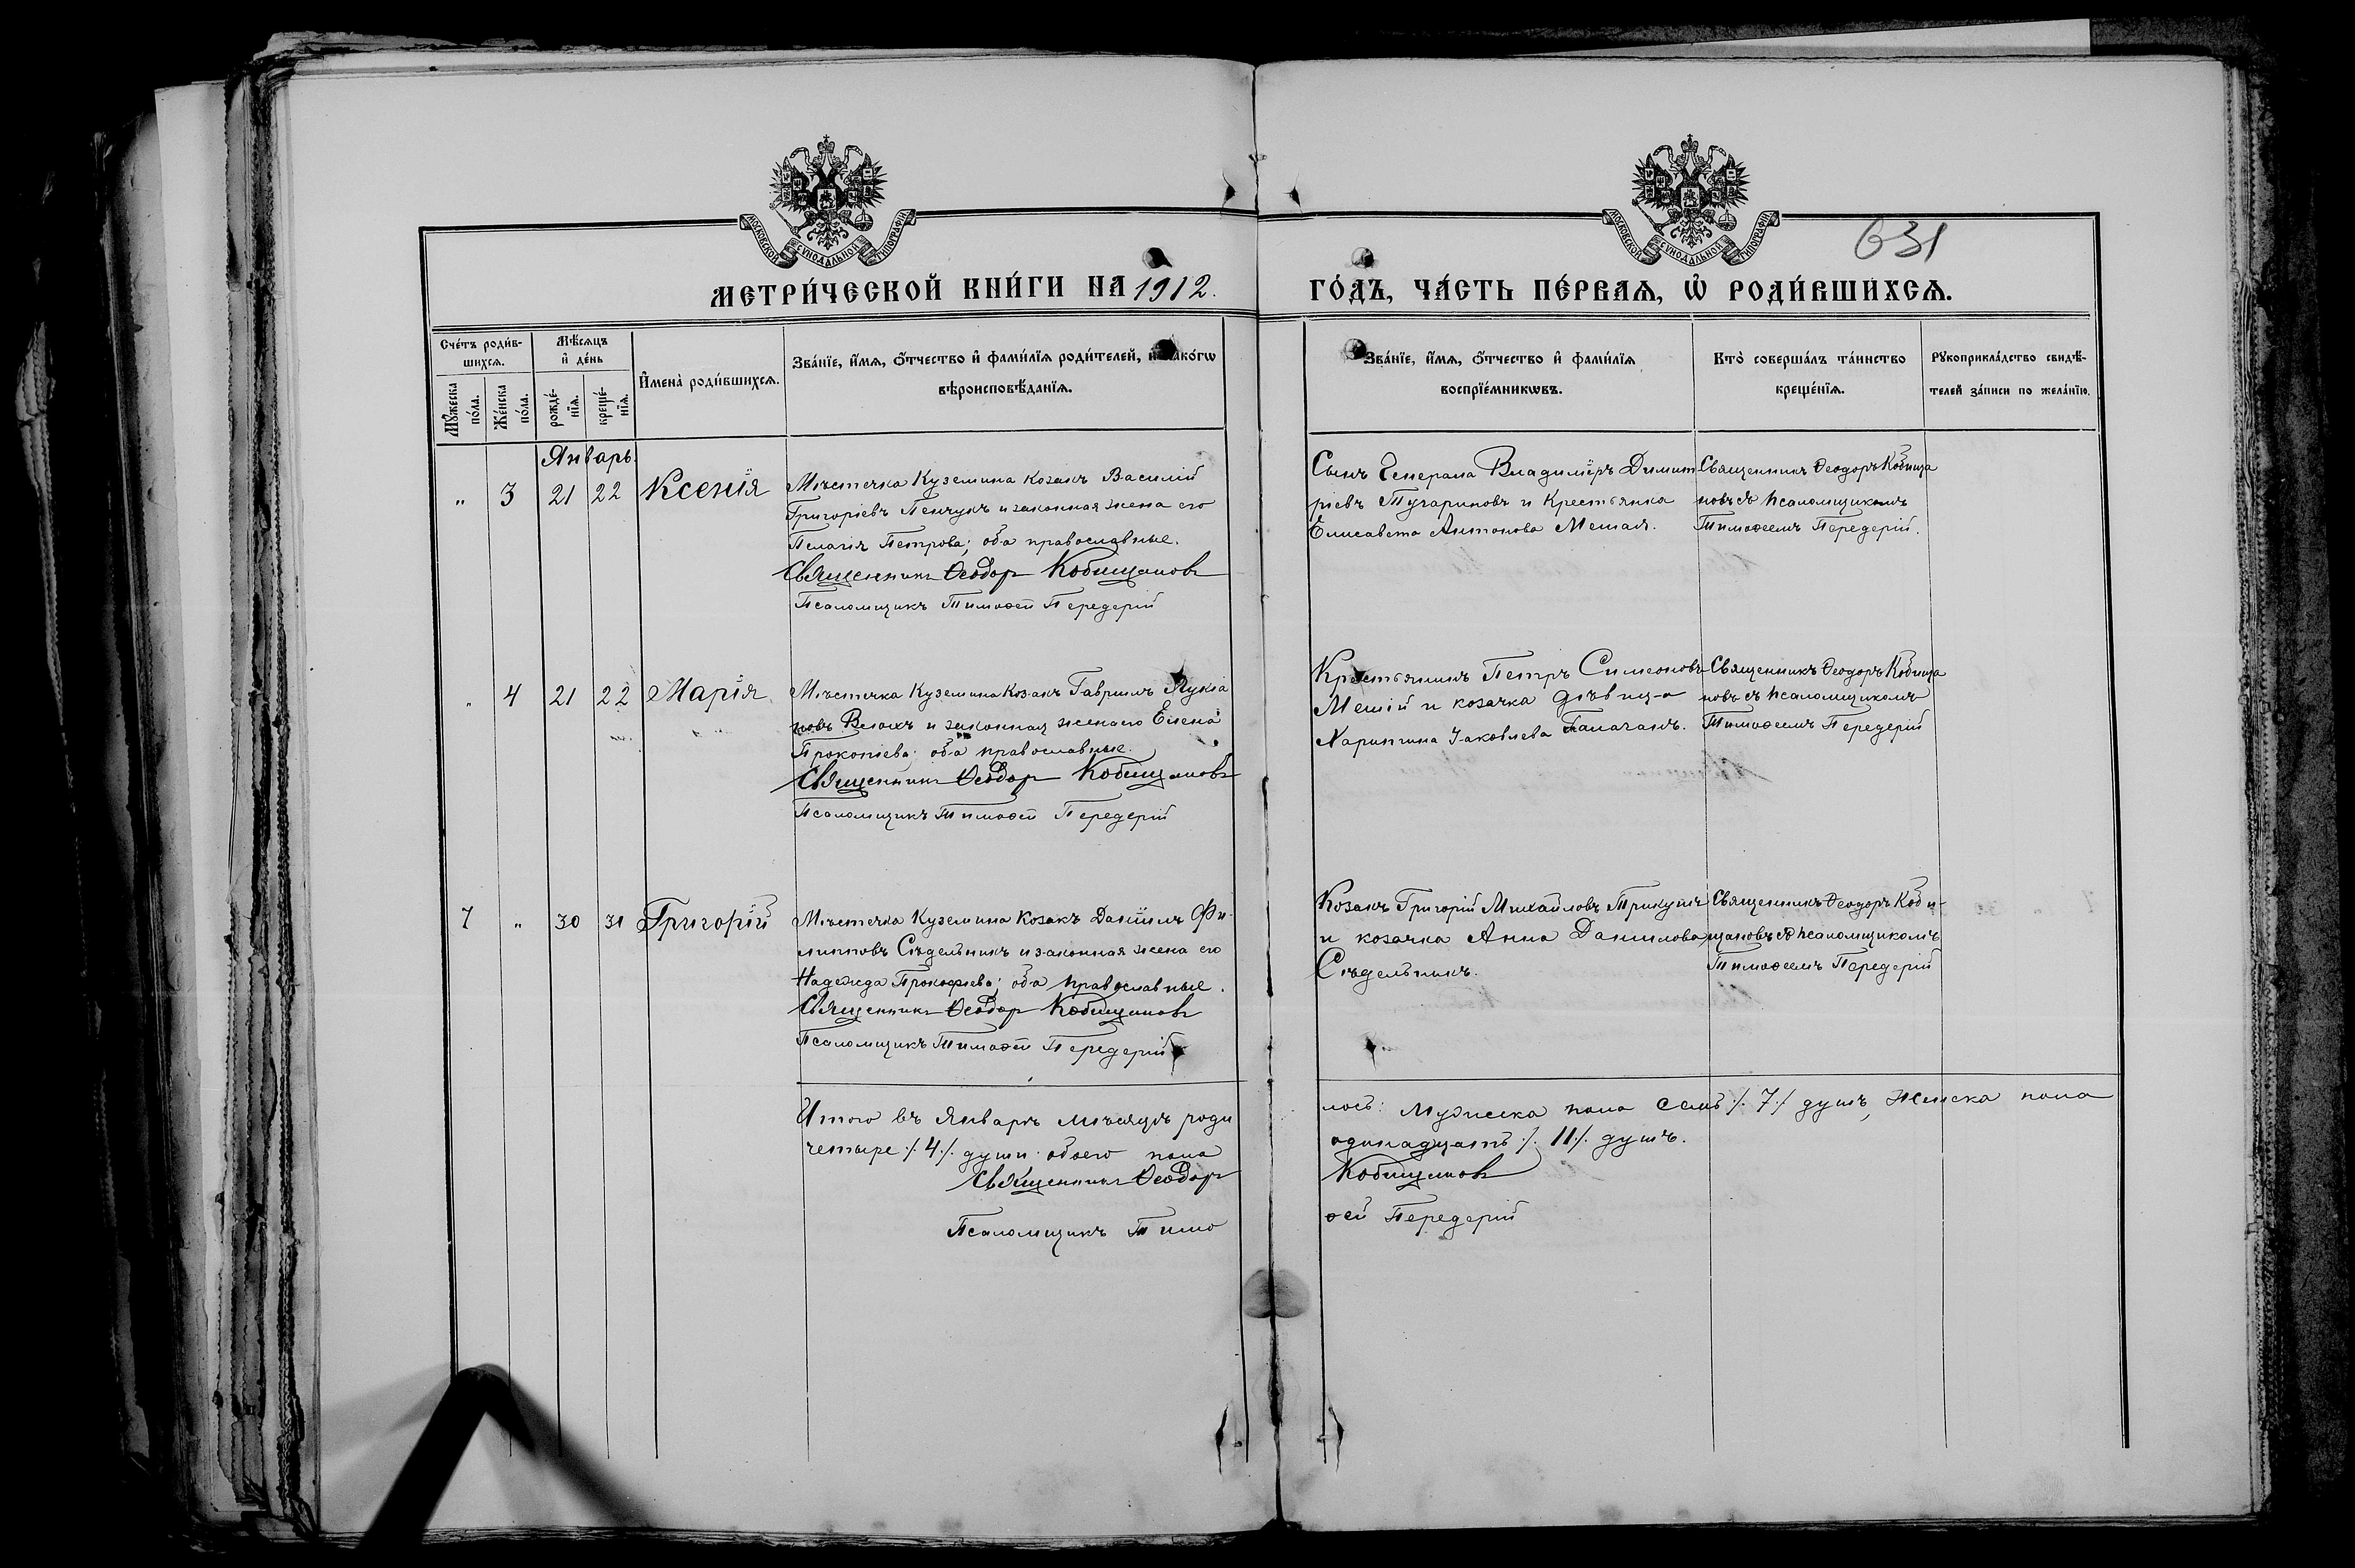 МОСКОВСКОЙ СУНОДАЛЬНОЙ ТИПОГРАФІИ
МОСКОВСКОЙ СУНОДАЛЬНОЙ ТИПОГРАФІИ
631
МЕТРИ́ЧЕСКОЙ КНИ́ГИ НА 1912.
ГО́ДЪ, ЧА́СТЬ ПЕ́РВАѦ, Ѡ҆ РОДИ́ВШИХСѦ.
Сче́тъ роди́в-
шихсѧ.
Мꙋ́жеска по́ла.
Же́нска по́ла.
Мѣ́сѧцъ
и҆ де́нь
рожде́-
нїѧ.
креще́-
нїѧ.
И҆мена̀ роди́вшихсѧ.
Зва́нїе, и҆́мѧ, ѻ҆́тчество и҆ фами́лїѧ роди́телей, и҆ како́гѡ
вѣроисповѣ́данїѧ.
Зва́нїе, и҆́мѧ, ѻ҆́тчество и҆ фами́лїѧ
воспрїе́мникѡвъ.
Кто̀ соверша́лъ та́инство
креще́нїѧ.
Рꙋкоприкла́дство свидѣ́-
телей за́писи по жела́нїю.
Январь.
„ 3 21 22 Ксенія
Мѣстечка Куземина козакъ Василій
Григоріевъ Пенчукъ и законная жена его
Пелагія Петрова; оба православные.
Священникъ Ѳеодоръ Кобищановъ
Псаломщикъ Тимоѳей Передерій
Сынъ Генерала Владиміръ Димит
ріевъ Тугариновъ и Крестьянка
Елисавета Антонова Мешая.
Священникъ Ѳеодоръ Кобища
новъ съ псаломщикомъ
Тимоѳеемъ Передерій.
„ 4 21 22 Марія
Мѣстечка Куземина Козакъ Гавріилъ Лукіа
новъ и законная жена его Елена
Прокопіева; оба православные.
Священникъ Ѳеодоръ Кобищановъ
Псаломщикъ Тимоѳей Передерій
Крестьянинъ Петръ Симеоновъ
Мешій и козачка дѣвица
Харитина Іаковлева Балачанъ.
Священникъ Ѳеодоръ Кобища
новъ съ псаломщикомъ
Тимоѳеемъ Передерій
7 „ 30 31 Григорій
Мѣстечка Куземина Козакъ Даніилъ Фи-
липповъ Сѣдельникъ и законная жена его
Надежда Прокофіева; оба православные.
Священникъ Ѳеодоръ Кобищановъ
Псаломщикъ Тимоѳей Передерій
Козакъ Григорій Михайловъ
и козачка Анна Данилова
Сѣдельникъ.
Священникъ Ѳеодоръ Коби-
щановъ съ псаломщикомъ
Тимоѳеемъ Передерій
Итого въ Январѣ мѣсяцѣ роди
лось: Мужеска пола семь ./. 7 ./. душъ, Женска пола
четыре ./. 4 ./. души обоего пола
одинадцать ./. 11 ./. душъ.
Священникъ Ѳеодоръ
Кобищановъ
Псаломщикъ Тимо
ѳей Передерій